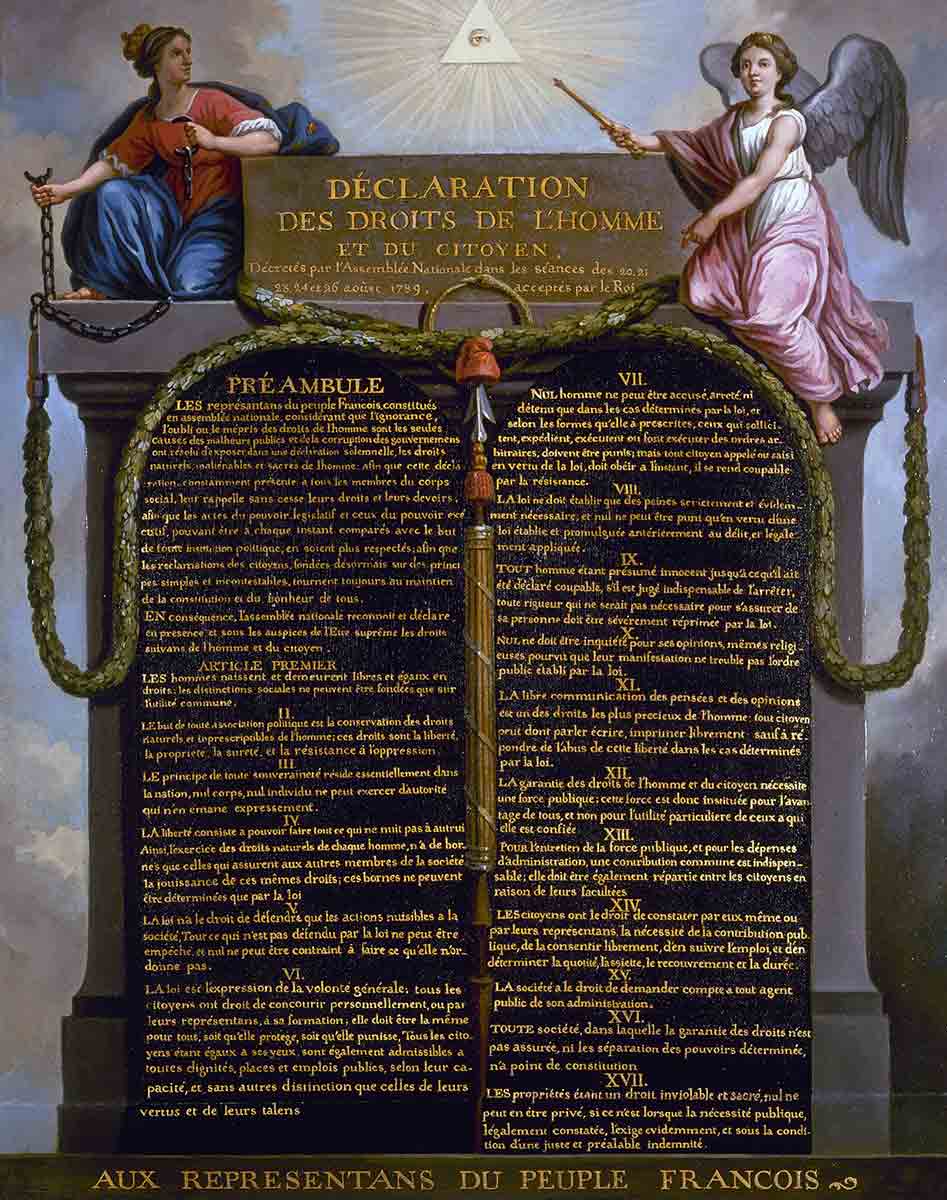 DÉCLARATION
DES DROITS DE L'HOMME
ET DU CITOYEN,
Décretés par l'Assemblée Nationale dans les séances des 20, 21
23, 24 et 26 aoûst 1789, acceptés par le Roi
PRÉAMBULE
LES représantans du peuple Francois, constitués
en assemblée nationale, considérant que l'ignorance,
l'oubli ou le mépris des droits de l'homme sont les seules
causes des malheurs publics et de la corruption des gouvernemens
ont résolu d'exposer, dans une déclaration solemnelle, les droits
naturels, inaliénables et sacrés de l'homme; afin que cette décla
ration, constamment présente a tous les membres du corps
social, leur rappelle sans cesse leurs droits et leurs devoirs,
afin que les actes du pouvoir législatif et ceux du pouvoir exé
cutif, pouvant être à chaque instant comparés avec le but
de toute institution politique, en soient plus respectés; afin que
les reclamations des citoyens, fondées désormais sur des princi
pes simples et incontestables, tournent toujours au maintien
de la constitution et du bonheur de tous.
EN conséquence, l'assemblée nationale reconnoit et déclare
en présence et sous les auspices de l'Etre suprême les droits
suivans de l'homme et du citoyen.
ARTICLE PREMIER
LES hommes naissent et demeurent libres et égaux en
droits; les distinctions sociales ne peuvent être fondées que sur
l'utilité commune.
II.
LE but de toute association politique est la conservation des droits
naturels et inprescripibles de l'homme; ces droits sont la liberté,
la propriété, la sureté, et la résistance à l'oppression.
III
LE principe de toute souveraineté réside essentiellement dans
la nation, nul corps, nul individu ne peut exercer d'autorité
qui n'en émane expressement.
IV
LA liberté consiste a pouvoir faire tout ce qui ne nuit pas à autrui
Ainsi, l'exercice des droits naturels de chaque homme, n'a de bor-
nes que celles qui assurent aux autres membres de la société
la jouissance de ces mêmes droits; ces bornes ne peuvent
être déterminées que par la loi
V.
LA loi n'a le droit de défendre que les actions nuisibles a la
société, Tout ce qui n'est pas défendu par la loi ne peut être
empêché, et nul ne peut être contraint à faire ce qu'elle n'or-
donne pas.
VI.
LA loi est l'expression de la volonté générale; tous les
citoyens ont droit de concourir personnellement, ou par
leurs représentans, à sa formation; elle doit être la même
pour tous, soit qu'elle protege, soit qu'elle punisse, Tous les cito-
yens étant égaux a ses yeux, sont également admissibles a
toutes dignités, places et emplois publics, selon leur ca-
pacité, et sans autres distinction que celles de leurs
vertus et de leurs talens
VII.
NUL homme ne peut être accusé, arreté, ni
détenu que dans les cas déterminés par la loi, et
selon les formes qu'elle à prescrites, ceux qui sollici-
tent, expédient, exécutent ou font exécuter des ordres ar-
bitraires, doivent être punis; mais tout citoyen appelé ou saisi
en vertu de la loi, doit obéir a l'instant, il se rend coupable
par la résistance.
VIII.
LA loi ne doit établir que des peines strictement et évidem-
ment nécessaire, et nul ne peut être puni qu'en vertu d'une
loi établie et promulguée antérierement au délit, et légale-
ment appliquée.
IX.
TOUT homme étant présumé innocent jusqu'à ce qu'il ait
été déclaré coupable, s'il est jugé indispensable de l'arrêter,
toute rigueur qui ne serait pas nécessaire pour s'assurer de
sa personne doit être sévèrement réprimée par la loi.
X.
NUL ne doit être inquiété pour ses opinions, mêmes religi-
euses pourvu que leur manifestation ne trouble pas l'ordre
public établi par la loi.
XI.
LA libre communication des pensées et des opinions
est un des droits les plus precieux de l'homme; tout citoyen
peut donc parler écrire, imprimer librement: sauf à ré
pondre de l'abus de cette liberté dans les cas déterminés
par la loi.
XII.
LA garantie des droits de l'homme et du citoyen nécessite
une force publique; cette force est donc instituée pour l'avan-
tage de tous, et non pour l'utilité particuliere de ceux a qui
elle est confiée
XIII.
POUR l'entretien de la force publique, et pour les dépenses
d'administration, une contribution commune est indispen-
sable; elle doit être également répartie entre les citoyens en
raison de leurs facultées
XIV.
LES citoyens ont le droit de constater par eux même ou
par leurs représentans, la nécessité de la contribution pub-
lique, de la consentir librement, d'en suivre l'emploi, et d'en
déterminer la quotité, l'assiette, le recouvrement et la durée.
XV.
LA société a le droit de demander compte a tout agent
public de son administration.
XVI.
TOUTE société, dans laquelle la garantie des droits n'est
pas assurée, ni les séparation des pouvoirs déterminée,
n'a point de constitution
XVII.
LES propriétés étant un droit inviolable et sacré, nul ne
peut en être privé, si ce n'est lorsque la nécessité publique,
légalement constatée, l'exige evidemment, et sous la condi-
tion d'une juste et préalable indemnité.
AUX REPRESENTANS DU PEUPLE FRANCOIS